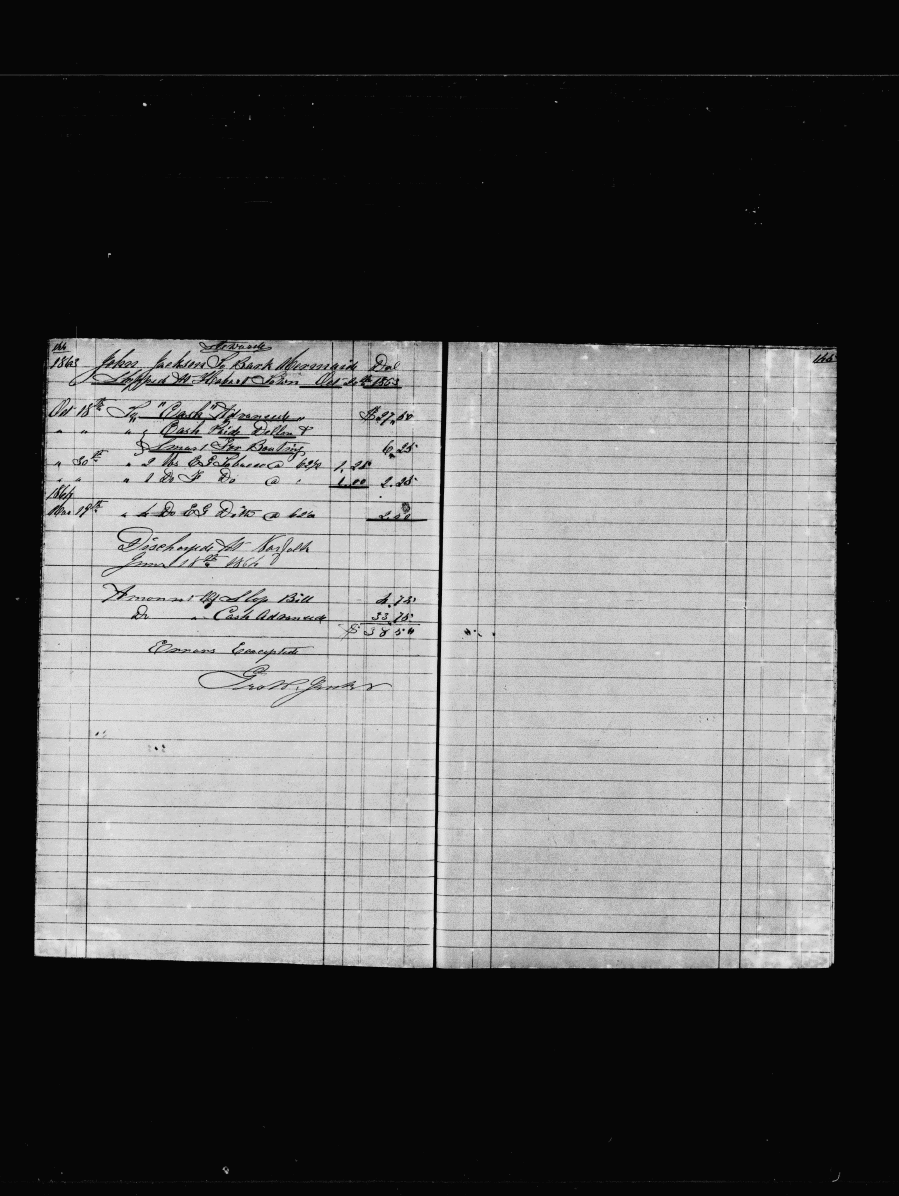 Steward
1863 John Jackson To Bark Mermaid Dol
Shipped At Hobart Town Oct 20th 1863
Oct 18th To "Cash" Advanced " $27,50
" " " " Cash Paid Dellon &
Smart For Boating 6,25
" 30th " 2 lbs E G Tobacco @ 62½ 1.25
" " " 1 Do F Do @ " 1.00 2.25
1864
Mar 19th " 4 Do E G Ditto @ 62½ 2.50
Discharged At Norfolk
June 18th 1864
Amount Of Slop Bill 4.75
Do " Cash Advanced 33.75
$38.50
Errors Excepted